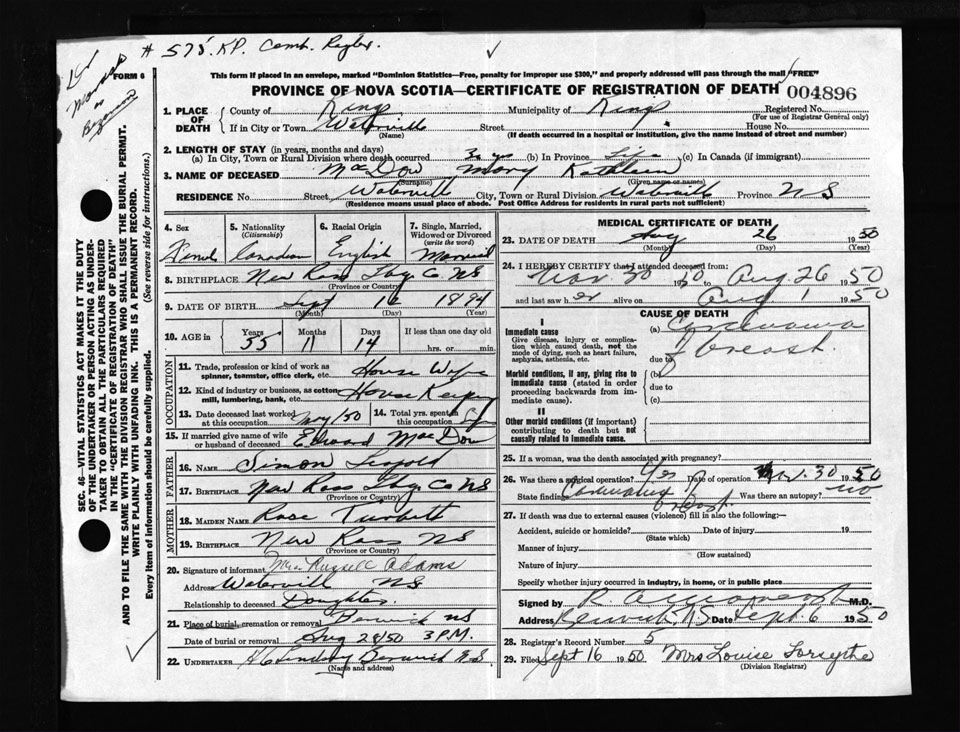 # 575. KP. Cemt. Regtr.
FORM 6
This form if placed in an envelope, marked "Dominion Statistics—Free, penalty for improper use $300," and properly addressed will pass through the mail "FREE"
PROVINCE OF NOVA SCOTIA—CERTIFICATE OF REGISTRATION OF DEATH 004896
1. PLACE OF DEATH County of Kings Municipality of Kings Registered No.
(For use of Registrar General only)
If in City or Town Waterville Street House No.
(Name) (If death occurred in a hospital or institution, give the name instead of street and number)
2. LENGTH OF STAY (in years, months and days)
(a) In City, Town or Rural Division where death occurred 3 yrs (b) In Province Life (c) In Canada (if immigrant)
3. NAME OF DECEASED MacDow Mary Kathleen
(Surname) (Given name or names)
RESIDENCE No. Street Waterville City, Town or Rural Division Waterville Province NS
(Residence means usual place of abode. Post Office Address for residents in rural parts not sufficient)
4. Sex 5. Nationality (Citizenship) 6. Racial Origin 7. Single, Married, Widowed or Divorced (write the word)
Female Canadian English Married
8. BIRTHPLACE New Ross Lbg. Co NS
(Province or Country)
9. DATE OF BIRTH Sept 12 1894
(Month) (Day) (Year)
10. AGE in Years Months Days If less than one day old
55 11 14 hrs. or min.
OCCUPATION
11. Trade, profession or kind of work as spinner, teamster, office clerk, etc. House Wife
12. Kind of industry or business, as cotton mill, lumbering, bank, etc. House Keeping
13. Date deceased last worked at this occupation May/50 14. Total yrs. spent in this occupation
15. If married give name of wife or husband of deceased Edward MacDow
FATHER
16. NAME Simon Leopold
17. BIRTHPLACE New Ross Lbg Co NS
(Province or Country)
MOTHER
18. MAIDEN NAME Rose Turbett
19. BIRTHPLACE New Ross NS
(Province or Country)
20. Signature of informant Mrs Russell Adams
Address Waterville NS
Relationship to deceased Daughter
21. Place of burial, cremation or removal Berwick NS
Date of burial or removal Aug 28/50 3 P.M.
22. UNDERTAKER Lindsay Berwick N.S.
(Name and address)
MEDICAL CERTIFICATE OF DEATH
23. DATE OF DEATH Aug 26 1950
(Month) (Day) (Year)
24. I HEREBY CERTIFY that I attended deceased from:
Nov. 30 1950 to Aug. 26 1950
and last saw her alive on Aug 1 1950
CAUSE OF DEATH
I
Immediate cause (a) Carcinoma of breast.
Give disease, injury or complication which caused death, not the mode of dying, such as heart failure, asphyxia, asthenia, etc. due to
Morbid conditions, if any, giving rise to immediate cause (stated in order proceeding backwards from immediate cause). (b) due to (c)
II
Other morbid conditions (if important) contributing to death but not causally related to immediate cause.
25. If a woman, was the death associated with pregnancy?
26. Was there a surgical operation? Yes Date of operation Nov. 30 1950
State findings Carcinoma of breast Was there an autopsy? no
27. If death was due to external causes (violence) fill in also the following:—
Accident, suicide or homicide? Date of injury 19
(State which)
Manner of injury
(How sustained)
Nature of injury
Specify whether injury occurred in industry, in home, or in public place
Signed by M.D.
Address Berwick, N.S Date Sept. 6 1950
28. Registrar's Record Number 5
29. Filed Sept 16 1950 Mrs Louise Forsythe
(Division Registrar)
SEC. 46—VITAL STATISTICS ACT MAKES IT THE DUTY
OF THE UNDERTAKER OR PERSON ACTING AS UNDERTAKER TO OBTAIN ALL THE PARTICULARS REQUIRED
IN THE "CERTIFICATE OF REGISTRATION OF DEATH"
AND TO FILE THE SAME WITH THE DIVISION REGISTRAR WHO SHALL ISSUE THE BURIAL PERMIT.
WRITE PLAINLY WITH UNFADING INK. THIS IS A PERMANENT RECORD.
Every item of information should be carefully supplied. (See reverse side for instructions.)